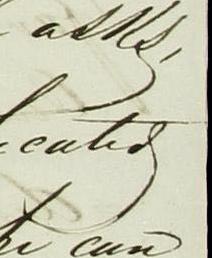 asks,
icated
he can